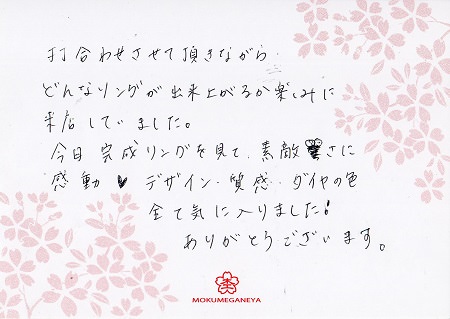 打合わせさせて頂きながら
どんなリングが出来上がるか楽しみに
来店していました。
今日完成リングを見て、素敵さに
感動♥デザイン、質感、ダイヤの色
全て気に入りました!
ありがとうございます。
MOKUMEGANEYA